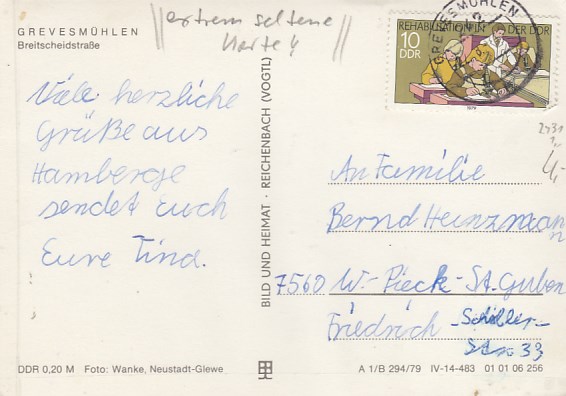 GREVESMÜHLEN
Breitscheidstraße
extrem seltene
Karte 4
Viele herzliche
Grüße aus
Hamberge
sendet Euch
Eure Tina.
BILD UND HEIMAT · REICHENBACH (VOGTL)
GREVESMÜHLEN
REHABILITATION IN DER DDR
10
DDR
1979
2431
1,-
4,-
An Familie
Bernd Heinzmann
7560 W.-Pieck-St.Guben
Friedrich-Schiller-
Str. 33
DDR 0,20 M Foto: Wanke, Neustadt-Glewe
A 1/B 294/79 IV-14-483 01 01 06 256